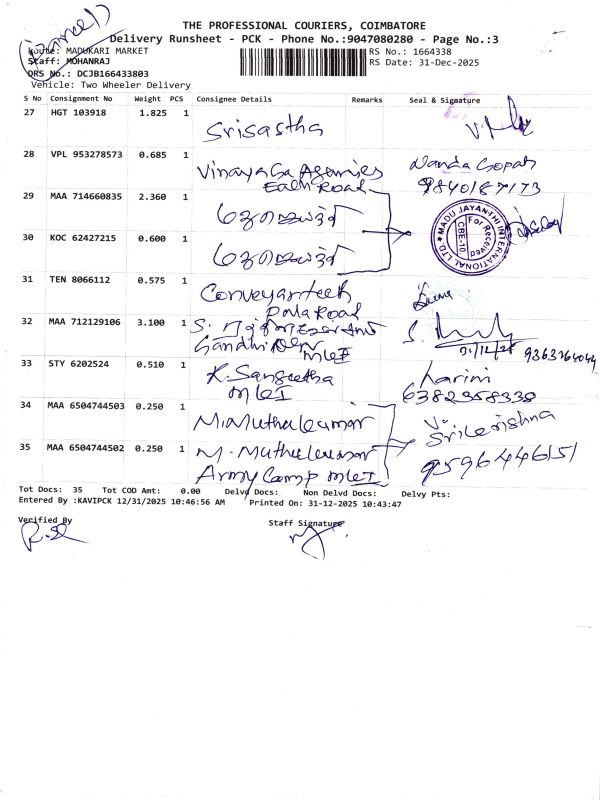 (Parcel)
THE PROFESSIONAL COURIERS, COIMBATORE
Delivery Runsheet - PCK - Phone No.:9047080280 - Page No.:3
Route: MADUKARI MARKET
RS No.: 1664338
Staff: MOHANRAJ
RS Date: 31-Dec-2025
DRS No.: DCJB166433803
Vehicle: Two Wheeler Delivery
S No Consignment No Weight PCS Consignee Details Remarks Seal & Signature
27 HGT 103918 1.825 1 Srisastha
28 VPL 953278573 0.685 1 Vinayaga Agencies Nanda Gopal
Road 9840187173
29 MAA 714660835 2.360 1
MADU JAYANTHI INTERNATIONAL LTD
For Received
CBE-10
30 KOC 62427215 0.600 1
31 TEN 8066112 0.575 1
Road
32 MAA 712129106 3.100 1 S.
Gandhi
31/12/25
33 STY 6202524 0.510 1 K. Sangeetha harini
6382358338
34 MAA 6504744503 0.250 1 M. Muthukumar
Srikrishna
35 MAA 6504744502 0.250 1 M. Muthukumar
Army Camp
Tot Docs: 35 Tot COD Amt: 0.00 Delvd Docs: Non Delvd Docs: Delvy Pts:
Entered By :KAVIPCK 12/31/2025 10:46:56 AM Printed On: 31-12-2025 10:43:47
Verified By Staff Signature